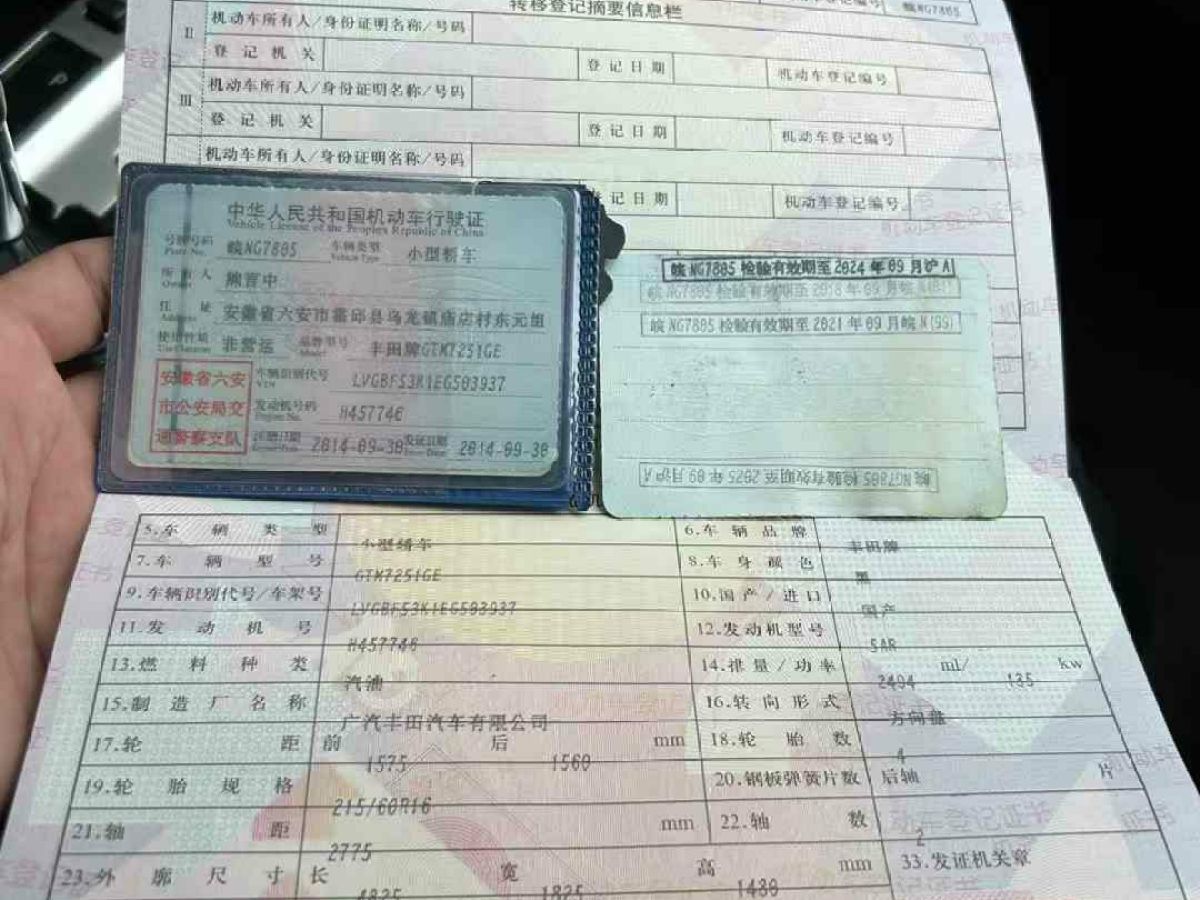 转移登记摘要信息栏
皖NG7885
II 机动车所有人/身份证明名称/号码
登记机关 登记日期 机动车登记编号
III 机动车所有人/身份证明名称/号码
登记机关 登记日期 机动车登记编号
机动车所有人/身份证明名称/号码
登记日期 机动车登记编号
中华人民共和国机动车行驶证
Vehicle License of the People's Republic of China
号牌号码 皖NG7885 车辆类型 小型轿车
Plate No. Vehicle Type
所有人 熊言中
Owner
住址 安徽省六安市霍邱县乌龙镇庙店村东元组
Address
使用性质 非营运 品牌型号 丰田牌GTM7251GE
Use Character Model
安徽省六安
市公安局交
通警察支队
车辆识别代号 LVGBF53K1EG503937
VIN
发动机号码 H457746
Engine No.
注册日期 2014-09-30 发证日期 2014-09-30
皖NG7885 检验有效期至2024年09月沪A
皖NG7885 检验有效期至2018年09月皖N
皖NG7885 检验有效期至2021年09月皖N(99)
皖NG7885 检验有效期至2025年09月沪A
5.车辆类型 小型轿车 6.车辆品牌 丰田牌
7.车辆型号 GTM7251GE 8.车身颜色 黑
9.车辆识别代号/车架号 LVGBF53K1EG503937 10.国产/进口 国产
11.发动机号 H457746 12.发动机型号 5AR
13.燃料种类 汽油 14.排量/功率 2494 ml/ 135 kw
15.制造厂名称 广汽丰田汽车有限公司 16.转向形式 方向盘
17.轮距 前 1575 后 1560 mm 18.轮胎数 4
19.轮胎规格 215/60R16 20.钢板弹簧片数 后轴 片
21.轴距 2775 mm 22.轴数 2
23.外廓尺寸 长 4825 宽 1825 高 1480 mm 33.发证机关章